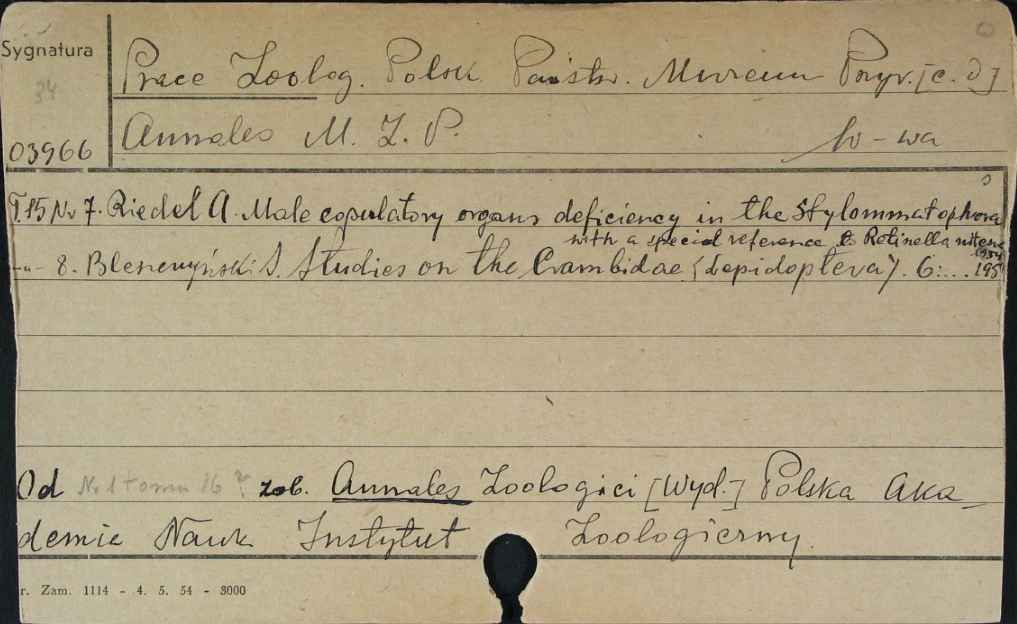 Sygnatura
34
03966
Prace Zoolog. Polsk. Państw. Muzeum Przyr. [c. d]
Annales M. Z. P. W-wa
T. 15 Nr 7. Riedel A. Male copulatory organs deficiency in the Stylommatophora
with a special reference to Retinella nitens
1954
-„- 8. Błeszczyński S. Studies on the Crambidae (Lepidoptera). 6: ... 195
Od Nr 1 tomu 16 ? zob. Annales Zoologici [Wyd.] Polska Aka-
demia Nauk Instytut Zoologiczny.
r. Zam. 1114 - 4. 5. 54 - 3000